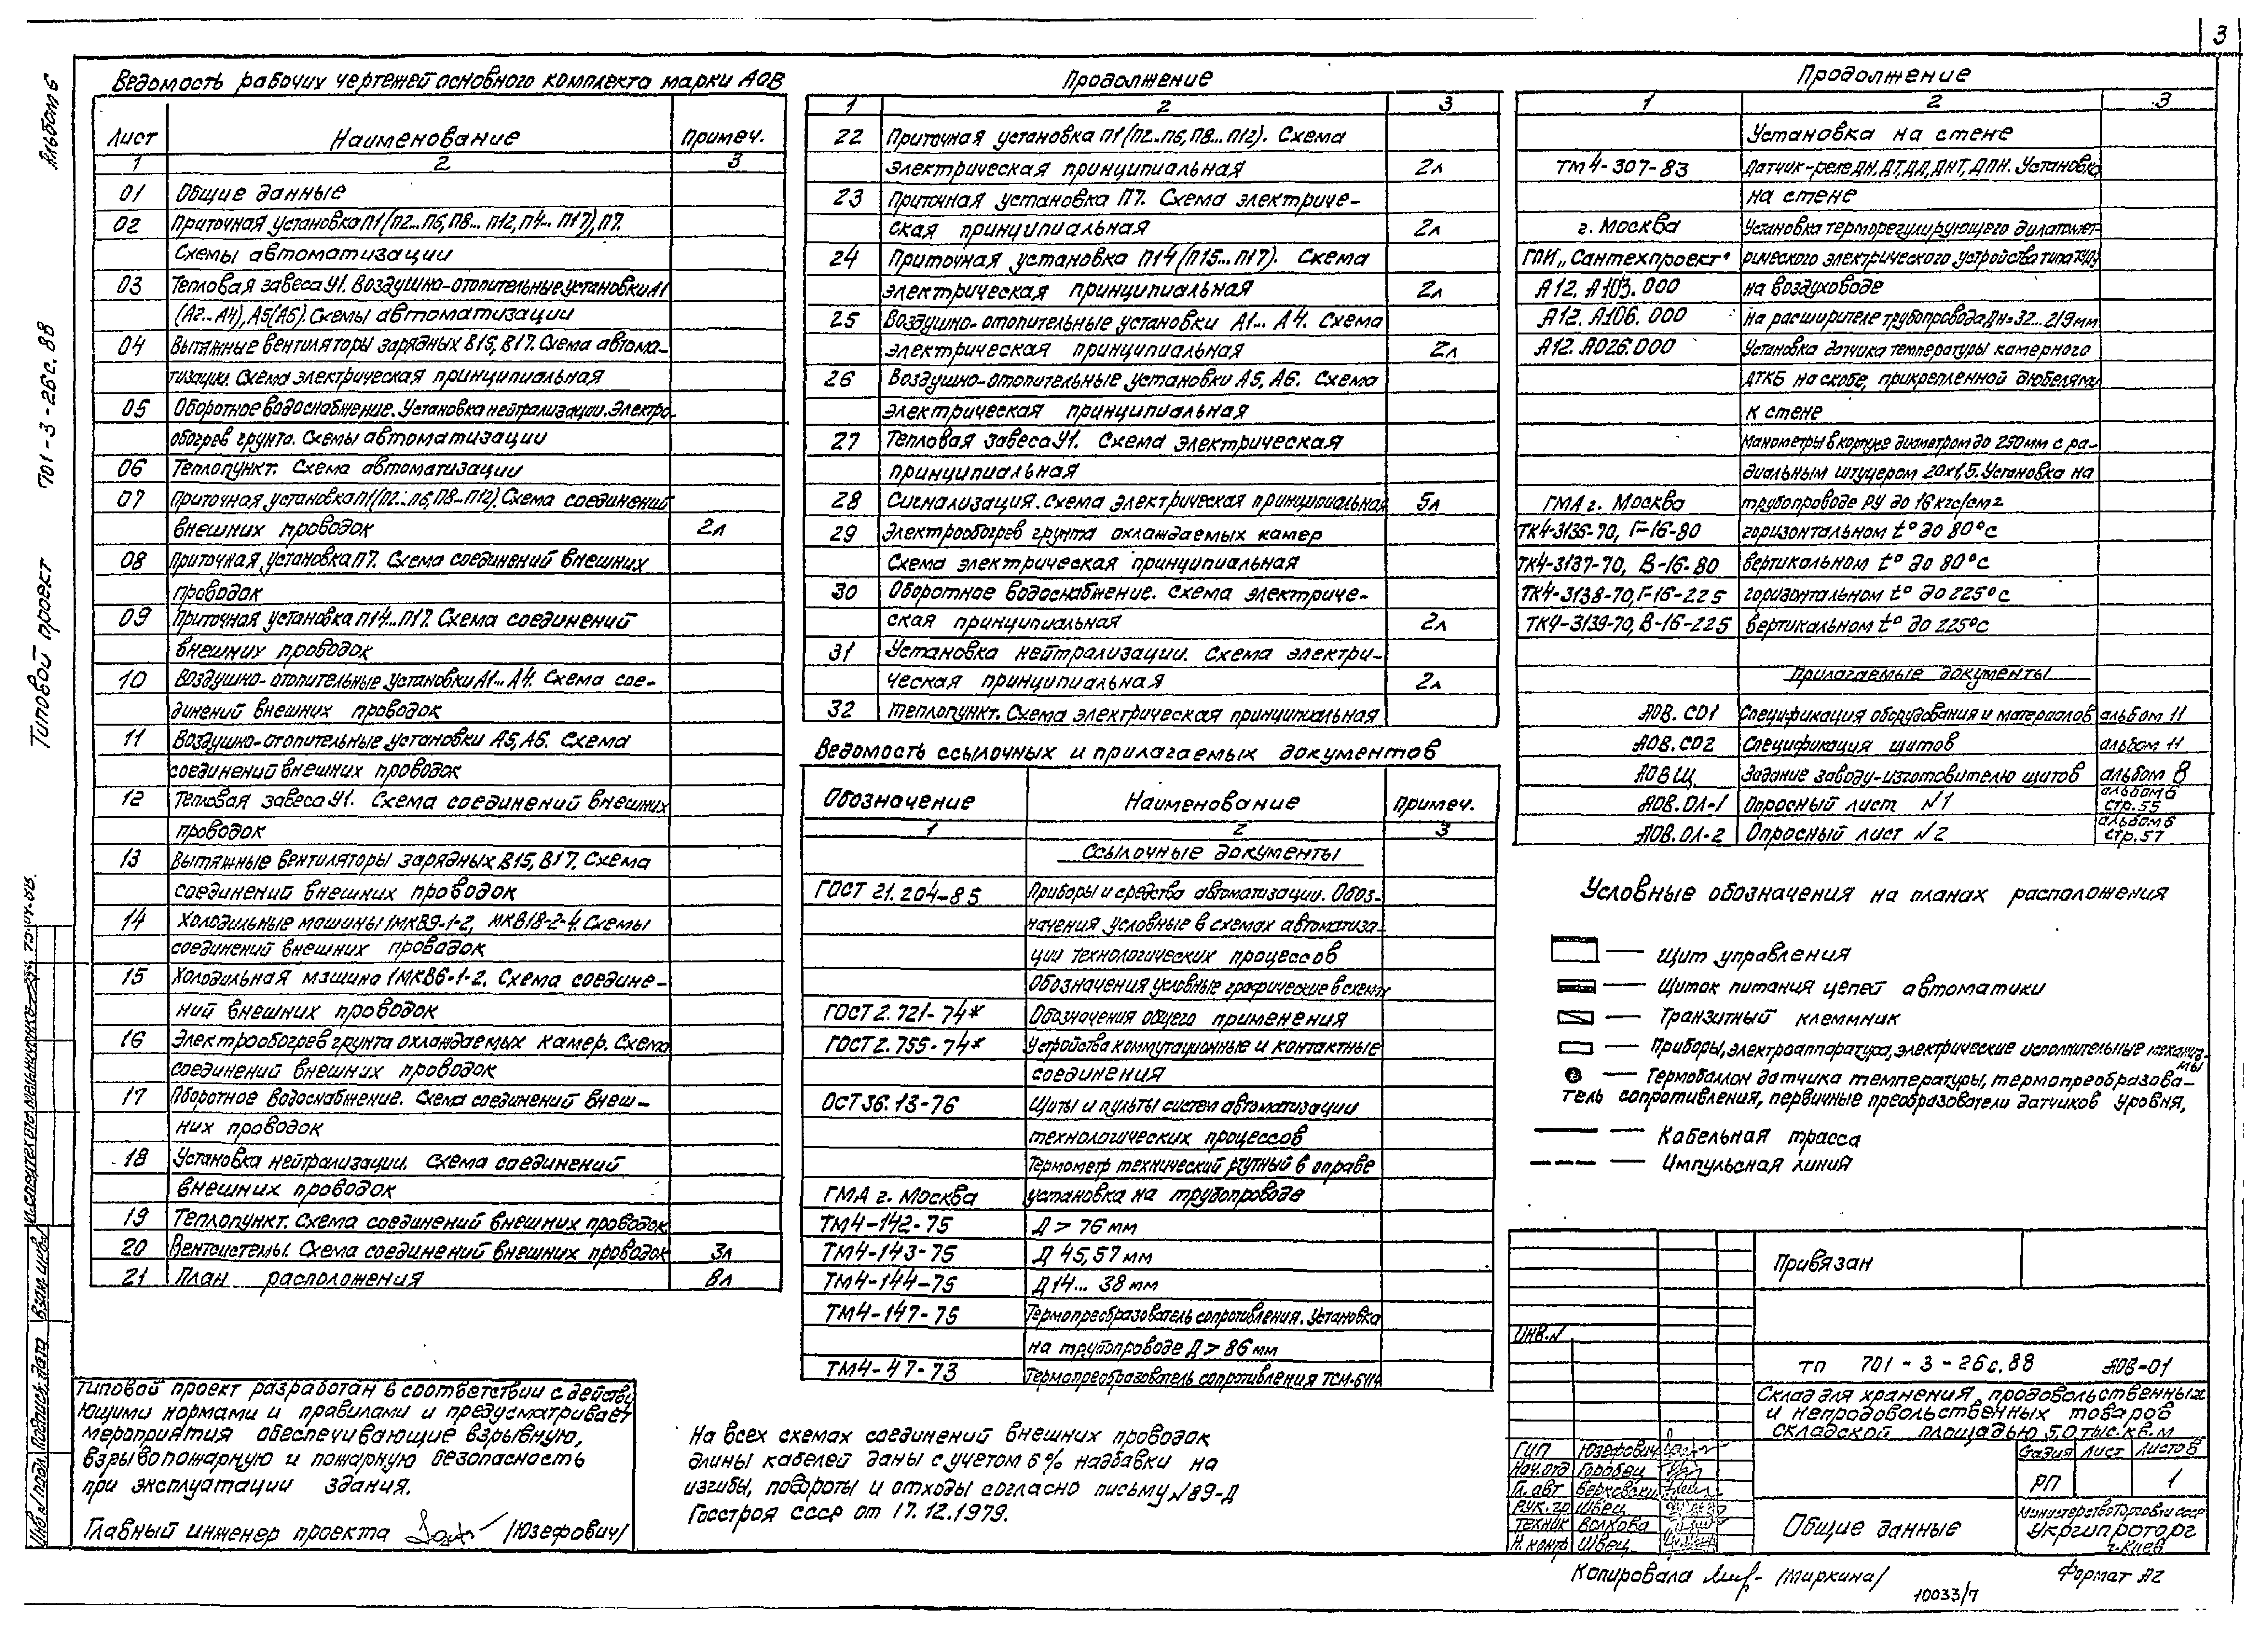 3
Альбом 6
701-3-26с.88
Типовой проект
Ведомость рабочих чертежей основного комплекта марки АОВ
Лист Наименование Примеч.
1 2 3
01 Общие данные
02 Приточная установка П1 (П2...П6, П8... П12, П4... П17), П7.
Схемы автоматизации
03 Тепловая завеса У1. Воздушно-отопительные установки А1
(А2...А4), А5(А6). Схемы автоматизации
04 Вытяжные вентиляторы зарядных В15, В17. Схема автома-
тизации. Схема электрическая принципиальная
05 Оборотное водоснабжение. Установка нейтрализации. Электро-
обогрев грунта. Схемы автоматизации
06 Теплопункт. Схема автоматизации
07 Приточная установка П1 (П2...П6, П8...П12). Схема соединений
внешних проводок 2л
08 Приточная установка П7. Схема соединений внешних
проводок
09 Приточная установка П14...П17. Схема соединений
внешних проводок
10 Воздушно-отопительные установки А1... А4. Схема сое-
динений внешних проводок
11 Воздушно-отопительные установки А5, А6. Схема
соединений внешних проводок
12 Тепловая завеса У1. Схема соединений внешних
проводок
13 Вытяжные вентиляторы зарядных В15, В17. Схема
соединений внешних проводок
14 Холодильные машины 1МКВ9-1-2, МКВ18-2-4. Схемы
соединений внешних проводок
15 Холодильная машина 1МКВ6-1-2. Схема соедине-
ний внешних проводок
16 Электрообогрев грунта охлаждаемых камер. Схема
соединений внешних проводок
17 Оборотное водоснабжение. Схема соединений внеш-
них проводок
18 Установка нейтрализации. Схема соединений
внешних проводок
19 Теплопункт. Схема соединений внешних проводок
20 Вентсистемы. Схема соединений внешних проводок 3л
21 План расположения 8л
Типовой проект разработан в соответствии с действу
ющими нормами и правилами и предусматривает
мероприятия обеспечивающие взрывную,
взрывопожарную и пожарную безопасность
при эксплуатации здания.
Главный инженер проекта /Юзефович/
Продолжение
1 2 3
22 Приточная установка П1 (П2...П6, П8... П12). Схема
электрическая принципиальная 2л
23 Приточная установка П7. Схема электриче-
ская принципиальная 2л
24 Приточная установка П14 (П15...П17). Схема
электрическая принципиальная 2л
25 Воздушно-отопительные установки А1... А4. Схема
электрическая принципиальная 2л
26 Воздушно-отопительные установки А5, А6. Схема
электрическая принципиальная
27 Тепловая завеса У1. Схема электрическая
принципиальная
28 Сигнализация. Схема электрическая принципиальная 5л
29 Электрообогрев грунта охлаждаемых камер
Схема электрическая принципиальная
30 Оборотное водоснабжение. Схема электриче-
ская принципиальная 2л
31 Установка нейтрализации. Схема электри-
ческая принципиальная 2л
32 Теплопункт. Схема электрическая принципиальная
Ведомость ссылочных и прилагаемых документов
Обозначение Наименование Примеч.
1 2 3
Ссылочные документы
ГОСТ 21.204-85 Приборы и средства автоматизации. Обоз-
начения условные в схемах автоматиза-
ции технологических процессов
Обозначения условные графические в схемах
ГОСТ 2.721-74* Обозначения общего применения
ГОСТ 2.755-74* Устройства коммутационные и контактные
соединения
ОСТ 36.13-76 Щиты и пульты систем автоматизации
технологических процессов
Термометр технический ртутный в оправе
ГМА г. Москва установка на трубопроводе
ТМ4-142-75 Д > 76 мм
ТМ4-143-75 Д 45, 57 мм
ТМ4-144-75 Д 14... 38 мм
ТМ4-147-75 Термопреобразователь сопротивления. Установка
на трубопроводе Д > 86 мм
ТМ4-47-73 Термопреобразователь сопротивления ТСМ-6114
На всех схемах соединений внешних проводок
длины кабелей даны с учетом 6% надбавки на
изгибы, повороты и отходы согласно письму №89-Д
Госстроя СССР от 17.12.1979.
Продолжение
1 2 3
Установка на стене
ТМ4-307-83 Датчик-реле ДН, ДТ, ДД, ДНТ, ДПН. Установка
на стене
г. Москва Установка терморегулирующего дилатомет-
ГПИ „Сантехпроект" рического электрического устройства типа ТУДЭ
А12. А103. 000 на воздуховоде
А12. А106. 000 на расширителе трубопровода Дн=32...219мм
А12. А026.000 Установка датчика температуры камерного
ДТКБ на скобе, прикрепленной дюбелями
к стене
Манометры в корпусе диаметром до 250мм с ра-
диальным штуцером 20х1,5. Установка на
ГМА г. Москва трубопроводе Ру до 16 кгс/см2
ТК4-3136-70, Г-16-80 горизонтальном t° до 80°с
ТК4-3137-70, В-16-80 вертикальном t° до 80°с
ТК4-3138-70, Г-16-225 горизонтальном t° до 225°с
ТК4-3139-70, В-16-225 вертикальном t° до 225°с
Прилагаемые документы
АОВ. СО1 Спецификация оборудования и материалов альбом 11
АОВ. СО2 Спецификация щитов альбом 11
АОВ Щ Задание заводу-изготовителю щитов альбом 8
АОВ. ОЛ-1 Опросный лист №1 альбом 6 стр.55
АОВ. ОЛ-2 Опросный лист №2 альбом 6 стр.57
Условные обозначения на планах расположения
— Щит управления
— Щиток питания цепей автоматики
— Транзитный клеммник
— Приборы, электроаппаратура, электрические исполнительные механиз-
мы
— Термобаллон датчика температуры, термопреобразова-
тель сопротивления, первичные преобразователи датчиков уровня,
— Кабельная трасса
— Импульсная линия
Привязан
Инв.№
ТП 701-3-26с.88 АОВ-01
Склад для хранения продовольственных
и непродовольственных товаров
складской площадью 5.0 тыс.кв.м
Стадия Лист Листов
РП 1
ГИП Юзефович
Нач.отд Горовец
Гл. авт Верховский
Рук.гр Швец
Техник Волкова
Н. контр Швец
Общие данные
Министерство Торговли СССР
Укргипроторг
г. Киев
Копировала /Миркина/
10033/7
Формат А2
Инв.№ подл. Подпись, дата Взам. инв.№